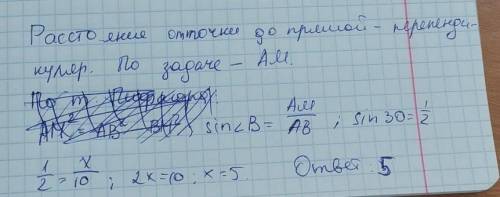 Расстояние от точки до прямой - перпенди-
куляр. По задаче - АМ.
По т. Пифагора:
AM² = AB² - BM² sin∠B = AM/AB ; sin30 = 1/2
1/2 = x/10 ; 2x=10 ; x=5. Ответ: 5